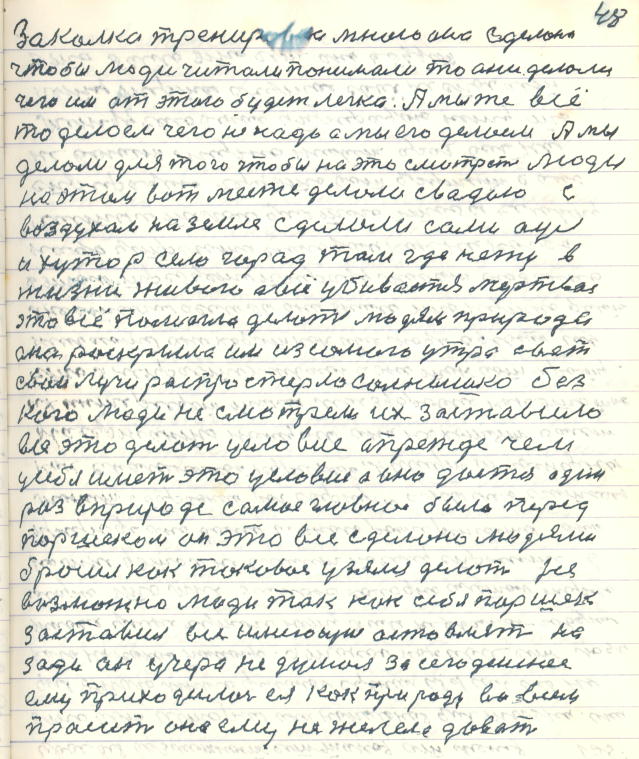 48
Закалка тренировка много она сделана
чтобы люди читали понимали то они делали
чего им от этого будет легка. А мы же всё
то делаем чего не надо а мы его делаем А мы
делали для того чтобы на это смотреть люди
на этом вот месте делали свадбю с
воздухам на земле сделали сами аул
и хутор село горад там где нету в
жизни живого а всё убивается мертвае
это всё помогла делать людям природа
она раскрыла им из самого утра свет
свои лучи распростерло солнышко без
кого люди не смотрели их заставило
всё это делат условие а прежде чем
у себя имет это условие а оно дается один
раз в природе самое главное была перед
паршеком он это все сделано людями
бросил как таковое узялся делат
возможно люди так как себя паршек
заставил все имеющие оставлят на
зади он учера не думал за сегоднешнее
ему приходилос ея как природу во всем
просит она ему не жалела дават